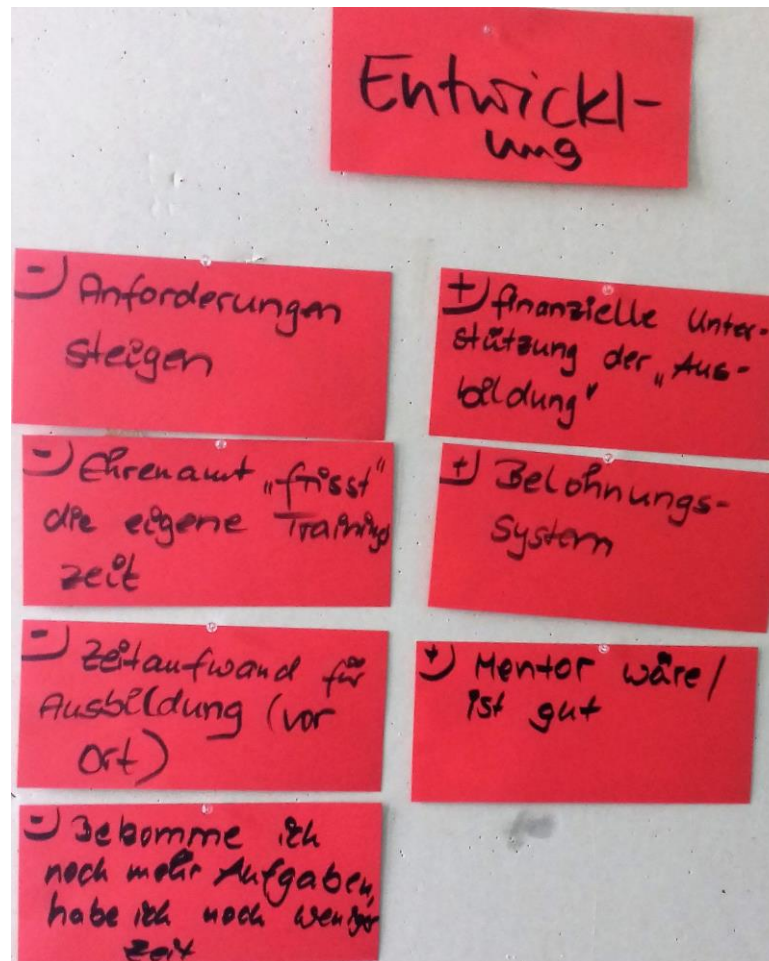 Entwickl-
ung
-) Anforderungen
steigen
-) Ehrenamt „frisst"
die eigene Trainings
zeit
-) Zeitaufwand für
Ausbildung (vor
Ort)
-) Bekomme ich
noch mehr Aufgaben,
habe ich noch weniger
zeit
+) finanzielle Unter-
stützung der „Aus-
bildung"
+) Belohnungs-
System
+) Mentor wäre/
ist gut